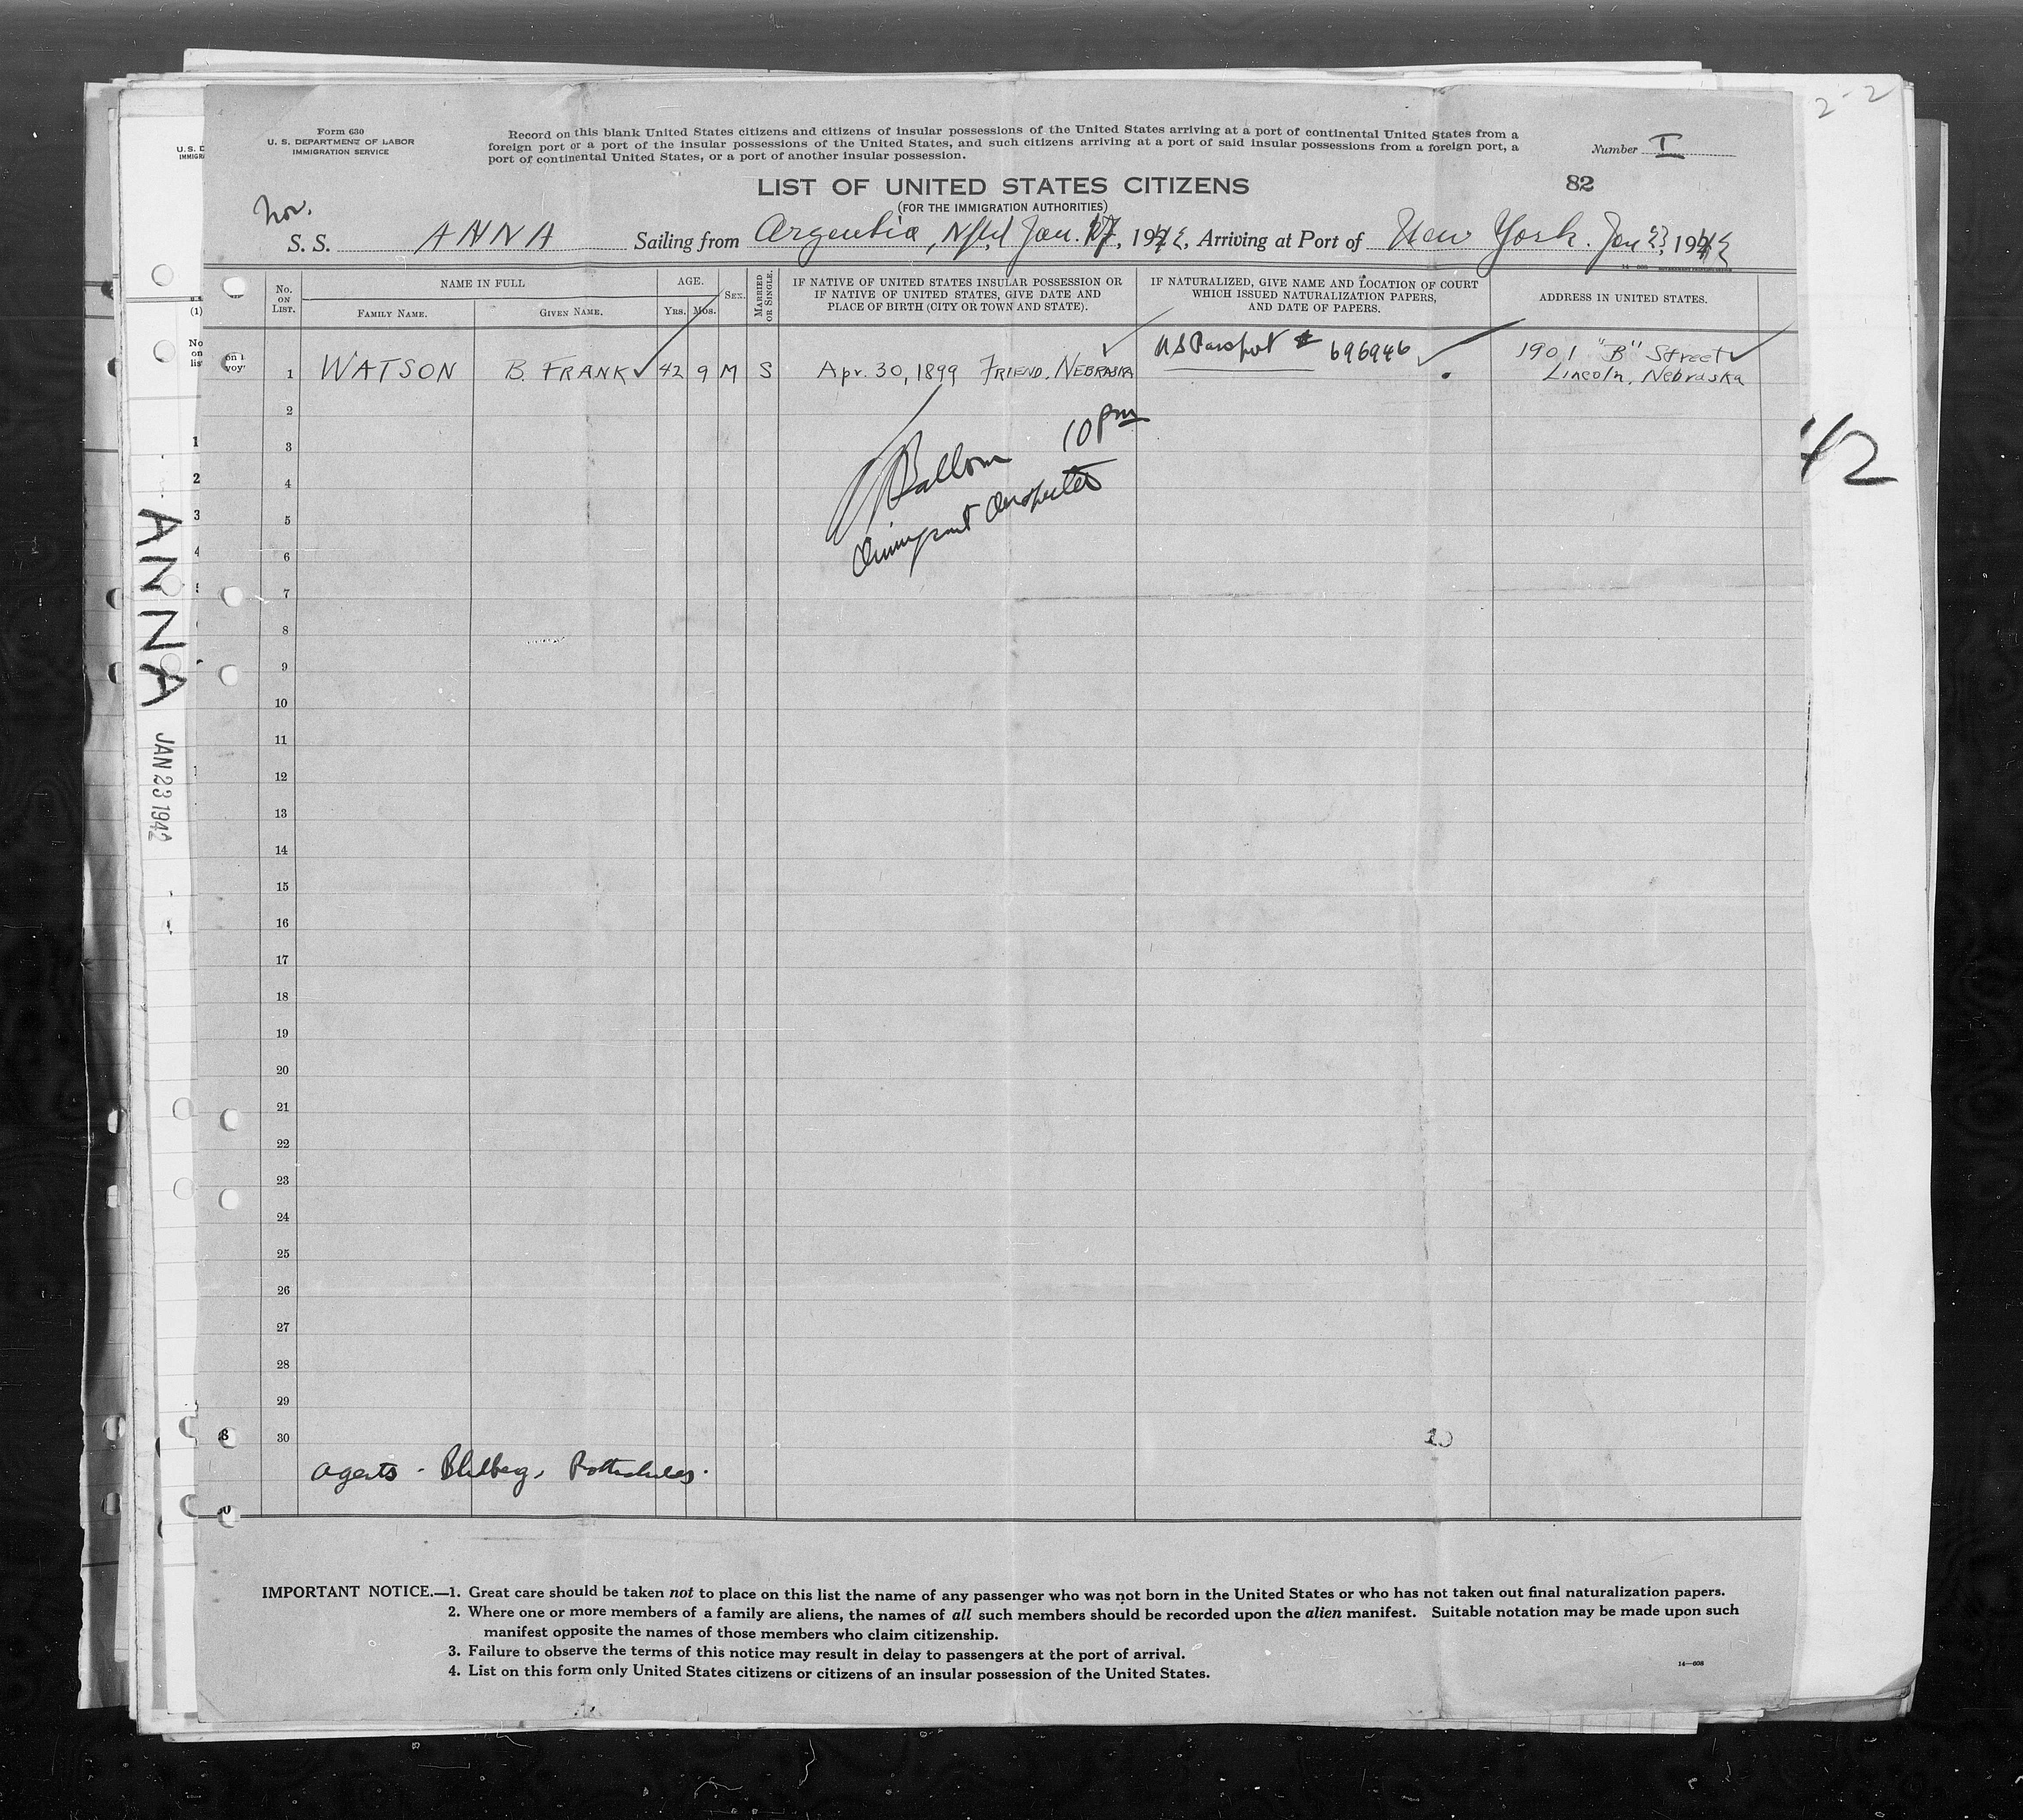 2-2
Form 630
U. S. DEPARTMENT OF LABOR
IMMIGRATION SERVICE
Record on this blank United States citizens and citizens of insular possessions of the United States arriving at a port of continental United States from a
foreign port or a port of the insular possessions of the United States, and such citizens arriving at a port of said insular possessions from a foreign port, a
port of continental United States, or a port of another insular possession.
Number I
LIST OF UNITED STATES CITIZENS
82
(FOR THE IMMIGRATION AUTHORITIES)
Nor.
S. S. ANNA Sailing from Argentia, Nfld Jan. 17, 1942, Arriving at Port of New York. Jan 23, 1942
No. ON LIST.
NAME IN FULL
FAMILY NAME. GIVEN NAME.
AGE.
YRS. MOS.
SEX.
MARRIED OR SINGLE.
IF NATIVE OF UNITED STATES INSULAR POSSESSION OR
IF NATIVE OF UNITED STATES, GIVE DATE AND
PLACE OF BIRTH (CITY OR TOWN AND STATE).
IF NATURALIZED, GIVE NAME AND LOCATION OF COURT
WHICH ISSUED NATURALIZATION PAPERS,
AND DATE OF PAPERS.
ADDRESS IN UNITED STATES.
1 WATSON B. FRANK 42 9 M S Apr. 30, 1899 FRIEND, NEBRASKA US Passport # 696946 1901 "B" Street
Lincoln, Nebraska
2
3
4
5
6
7
8
9
10
11
12
13
14
15
16
17
18
19
20
21
22
23
24
25
26
27
28
29
30
10 pm
Immigrant Inspector
42
ANNA
JAN 23 1942
Agents
IMPORTANT NOTICE.—1. Great care should be taken not to place on this list the name of any passenger who was not born in the United States or who has not taken out final naturalization papers.
2. Where one or more members of a family are aliens, the names of all such members should be recorded upon the alien manifest. Suitable notation may be made upon such
manifest opposite the names of those members who claim citizenship.
3. Failure to observe the terms of this notice may result in delay to passengers at the port of arrival.
4. List on this form only United States citizens or citizens of an insular possession of the United States.
14—608